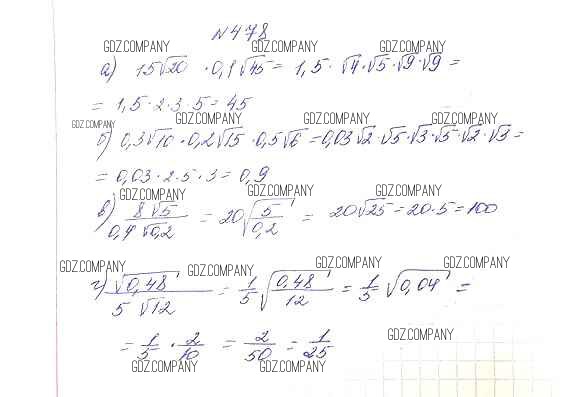 №478
GDZ.COMPANY GDZ.COMPANY GDZ.COMPANY
а) 15√20 · 0,1√45 = 1,5 · √4 · √5 · √9 · √9 =
= 1,5 · 2 · 3 · 5 = 45
GDZ.COMPANY GDZ.COMPANY GDZ.COMPANY GDZ.COMPANY
б) 0,3√10 · 0,2√15 · 0,5√6 = 0,03√2 · √5 · √3 · √5 · √2 · √3 =
= 0,03 · 2 · 5 · 3 = 0,9
GDZ.COMPANY GDZ.COMPANY GDZ.COMPANY
в) 8√5 / 0,4√0,2 = 20√(5 / 0,2) = 20√25 = 20 · 5 = 100
GDZ.COMPANY GDZ.COMPANY GDZ.COMPANY GDZ.COMPANY
г) √0,48 / 5√12 = 1/5 √(0,48 / 12) = 1/5 √0,04 =
GDZ.COMPANY
= 1/5 · 2/10 = 2/50 = 1/25
GDZ.COMPANY GDZ.COMPANY